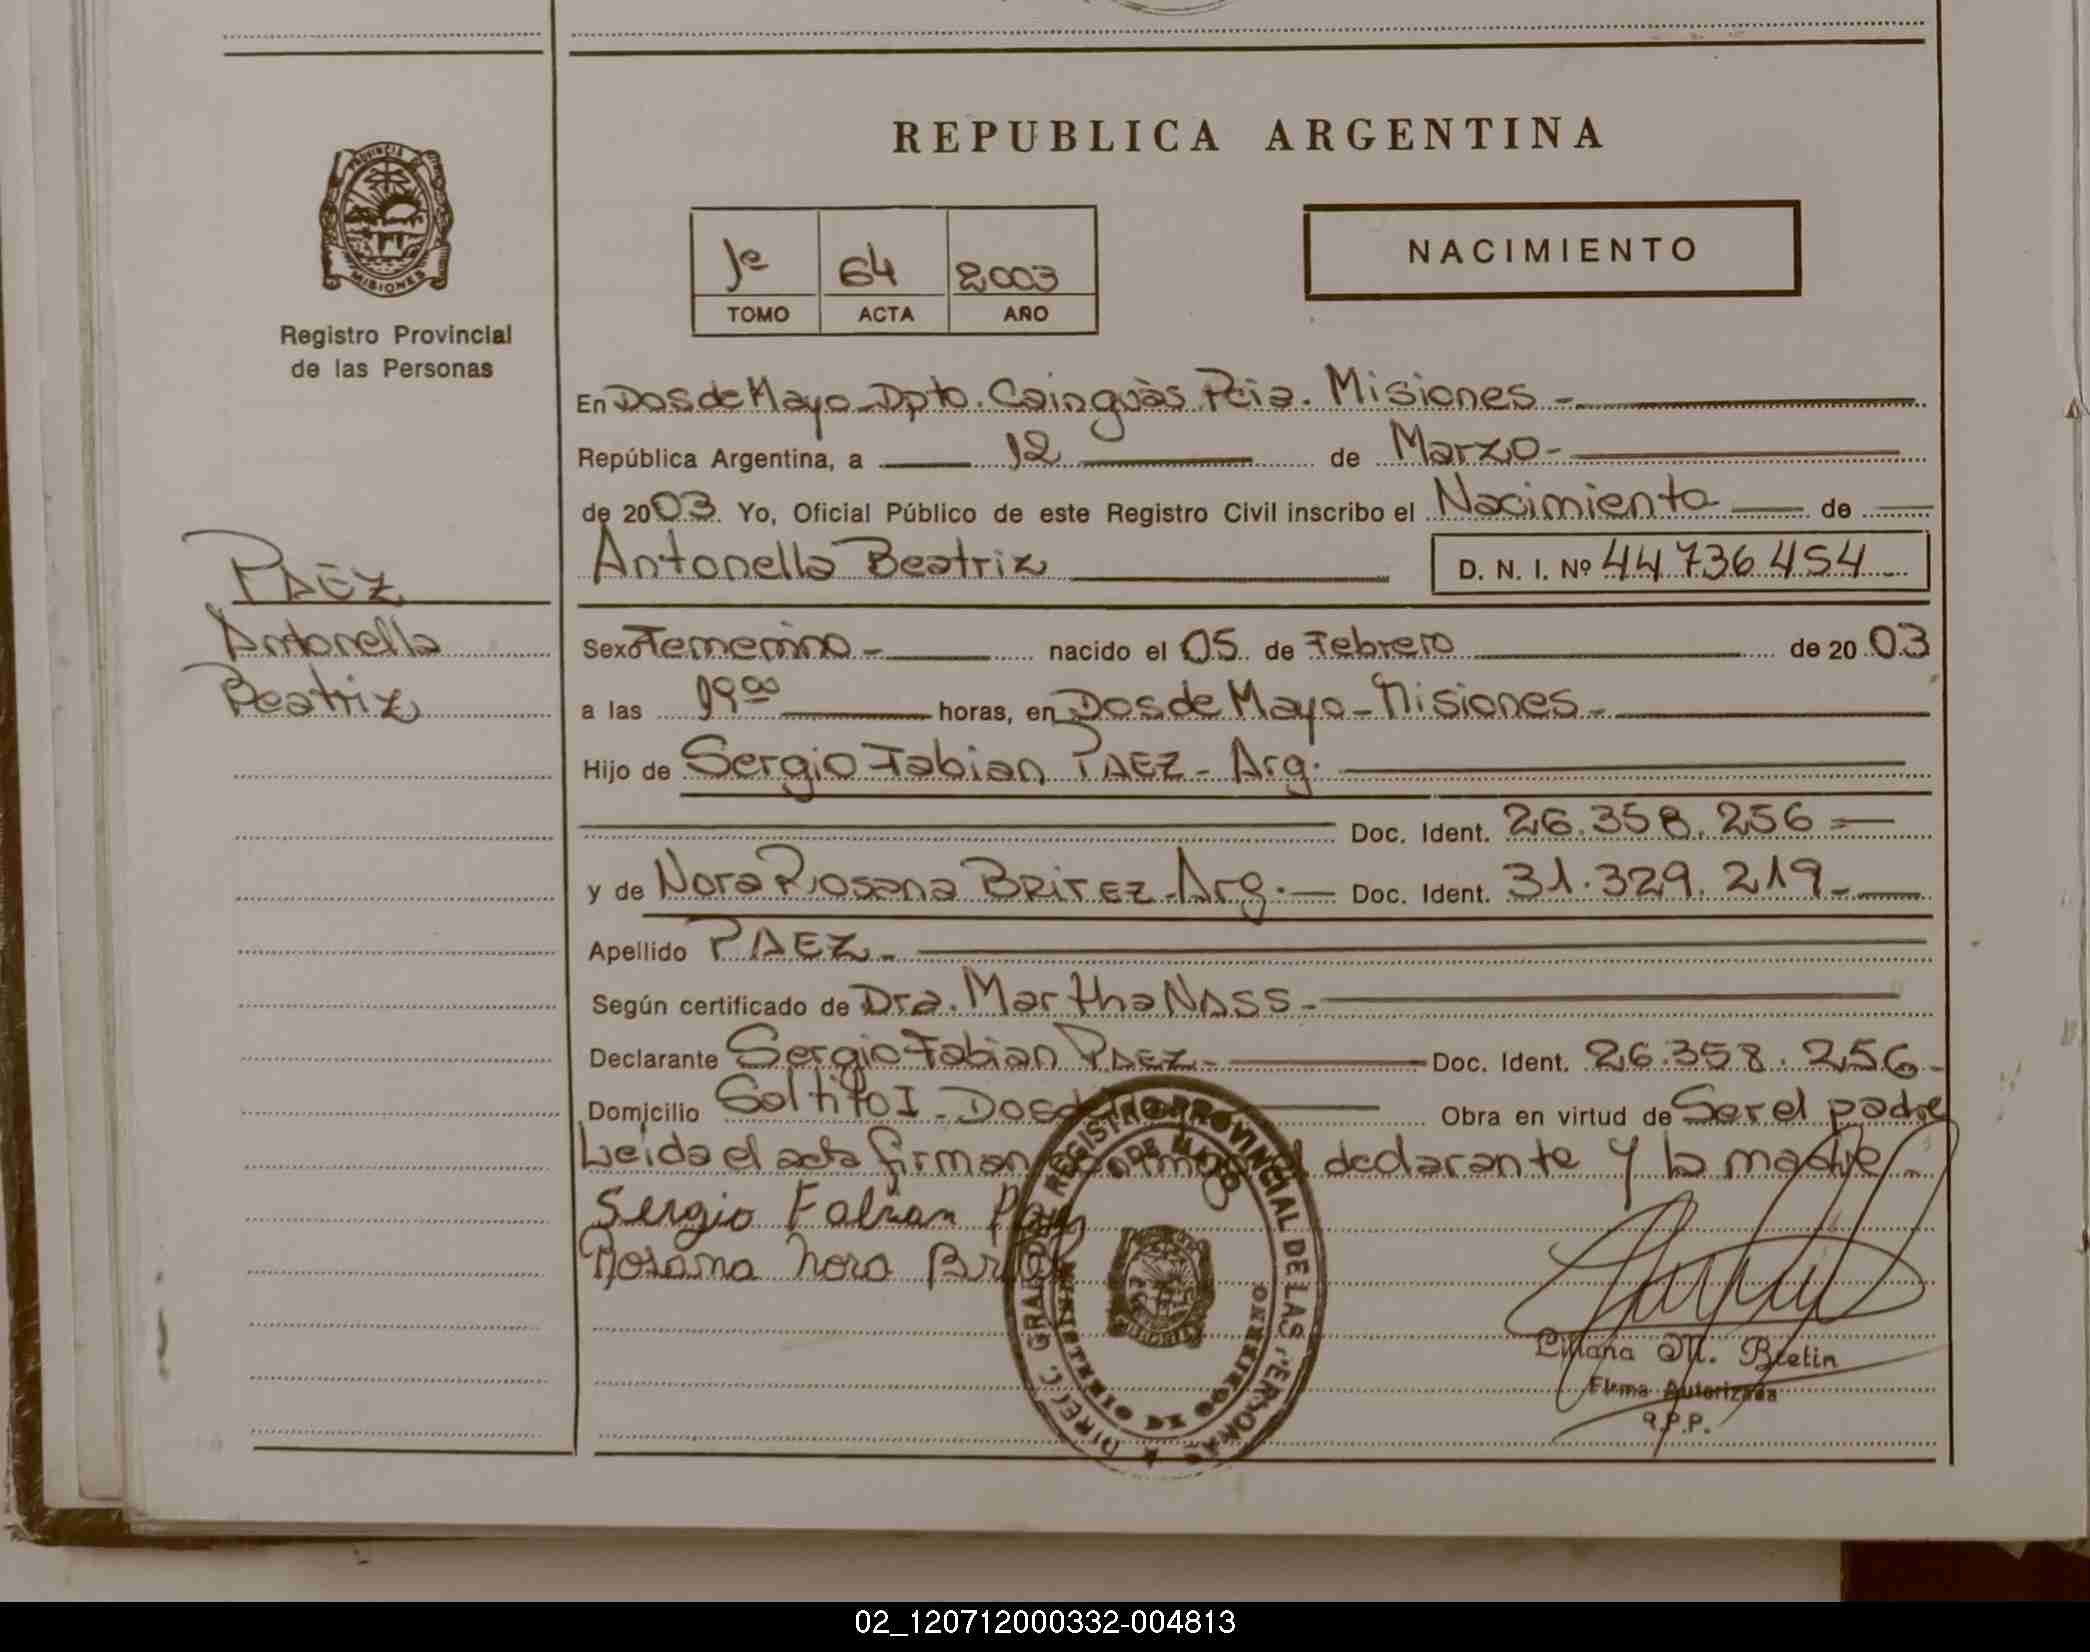 REPUBLICA ARGENTINA
PROVINCIA
MISIONES
Registro Provincial
de las Personas
1º 64 2003
TOMO ACTA AÑO
NACIMIENTO
En Dos de Mayo - Dpto. Cainguàs Pcia. Misiones -
República Argentina, a 12 de Marzo -
de 2003. Yo, Oficial Público de este Registro Civil inscribo el Nacimiento de
Antonella Beatriz D. N. I. Nº 44 736 454
PAEZ
Antonella
Beatriz
Sexo Femenino - nacido el 05 de Febrero de 2003
a las 19 00 horas, en Dos de Mayo - Misiones -
Hijo de Sergio Fabian PAEZ - Arg.
Doc. Ident. 26.358.256
y de Nora Rosana BRITEZ - Arg. - Doc. Ident. 31.329.219 -
Apellido PAEZ -
Según certificado de Dra. Martha NASS -
Declarante Sergio Fabian PAEZ - Doc. Ident. 26.358.256 -
Domicilio Saltito I - Dos de Obra en virtud de Ser el padre
Leida el acta firman declarante y la madre -
Sergio Fabian Paez
Rosana Nora
DIRECC. GRAL. DE REGISTRO PROVINCIAL DE LAS PERSONAS
DOS DE MAYO
MINISTERIO DE GOBIERNO
Liliana M. Bietin
Firma Autorizada
R.P.P.
02_120712000332-004813